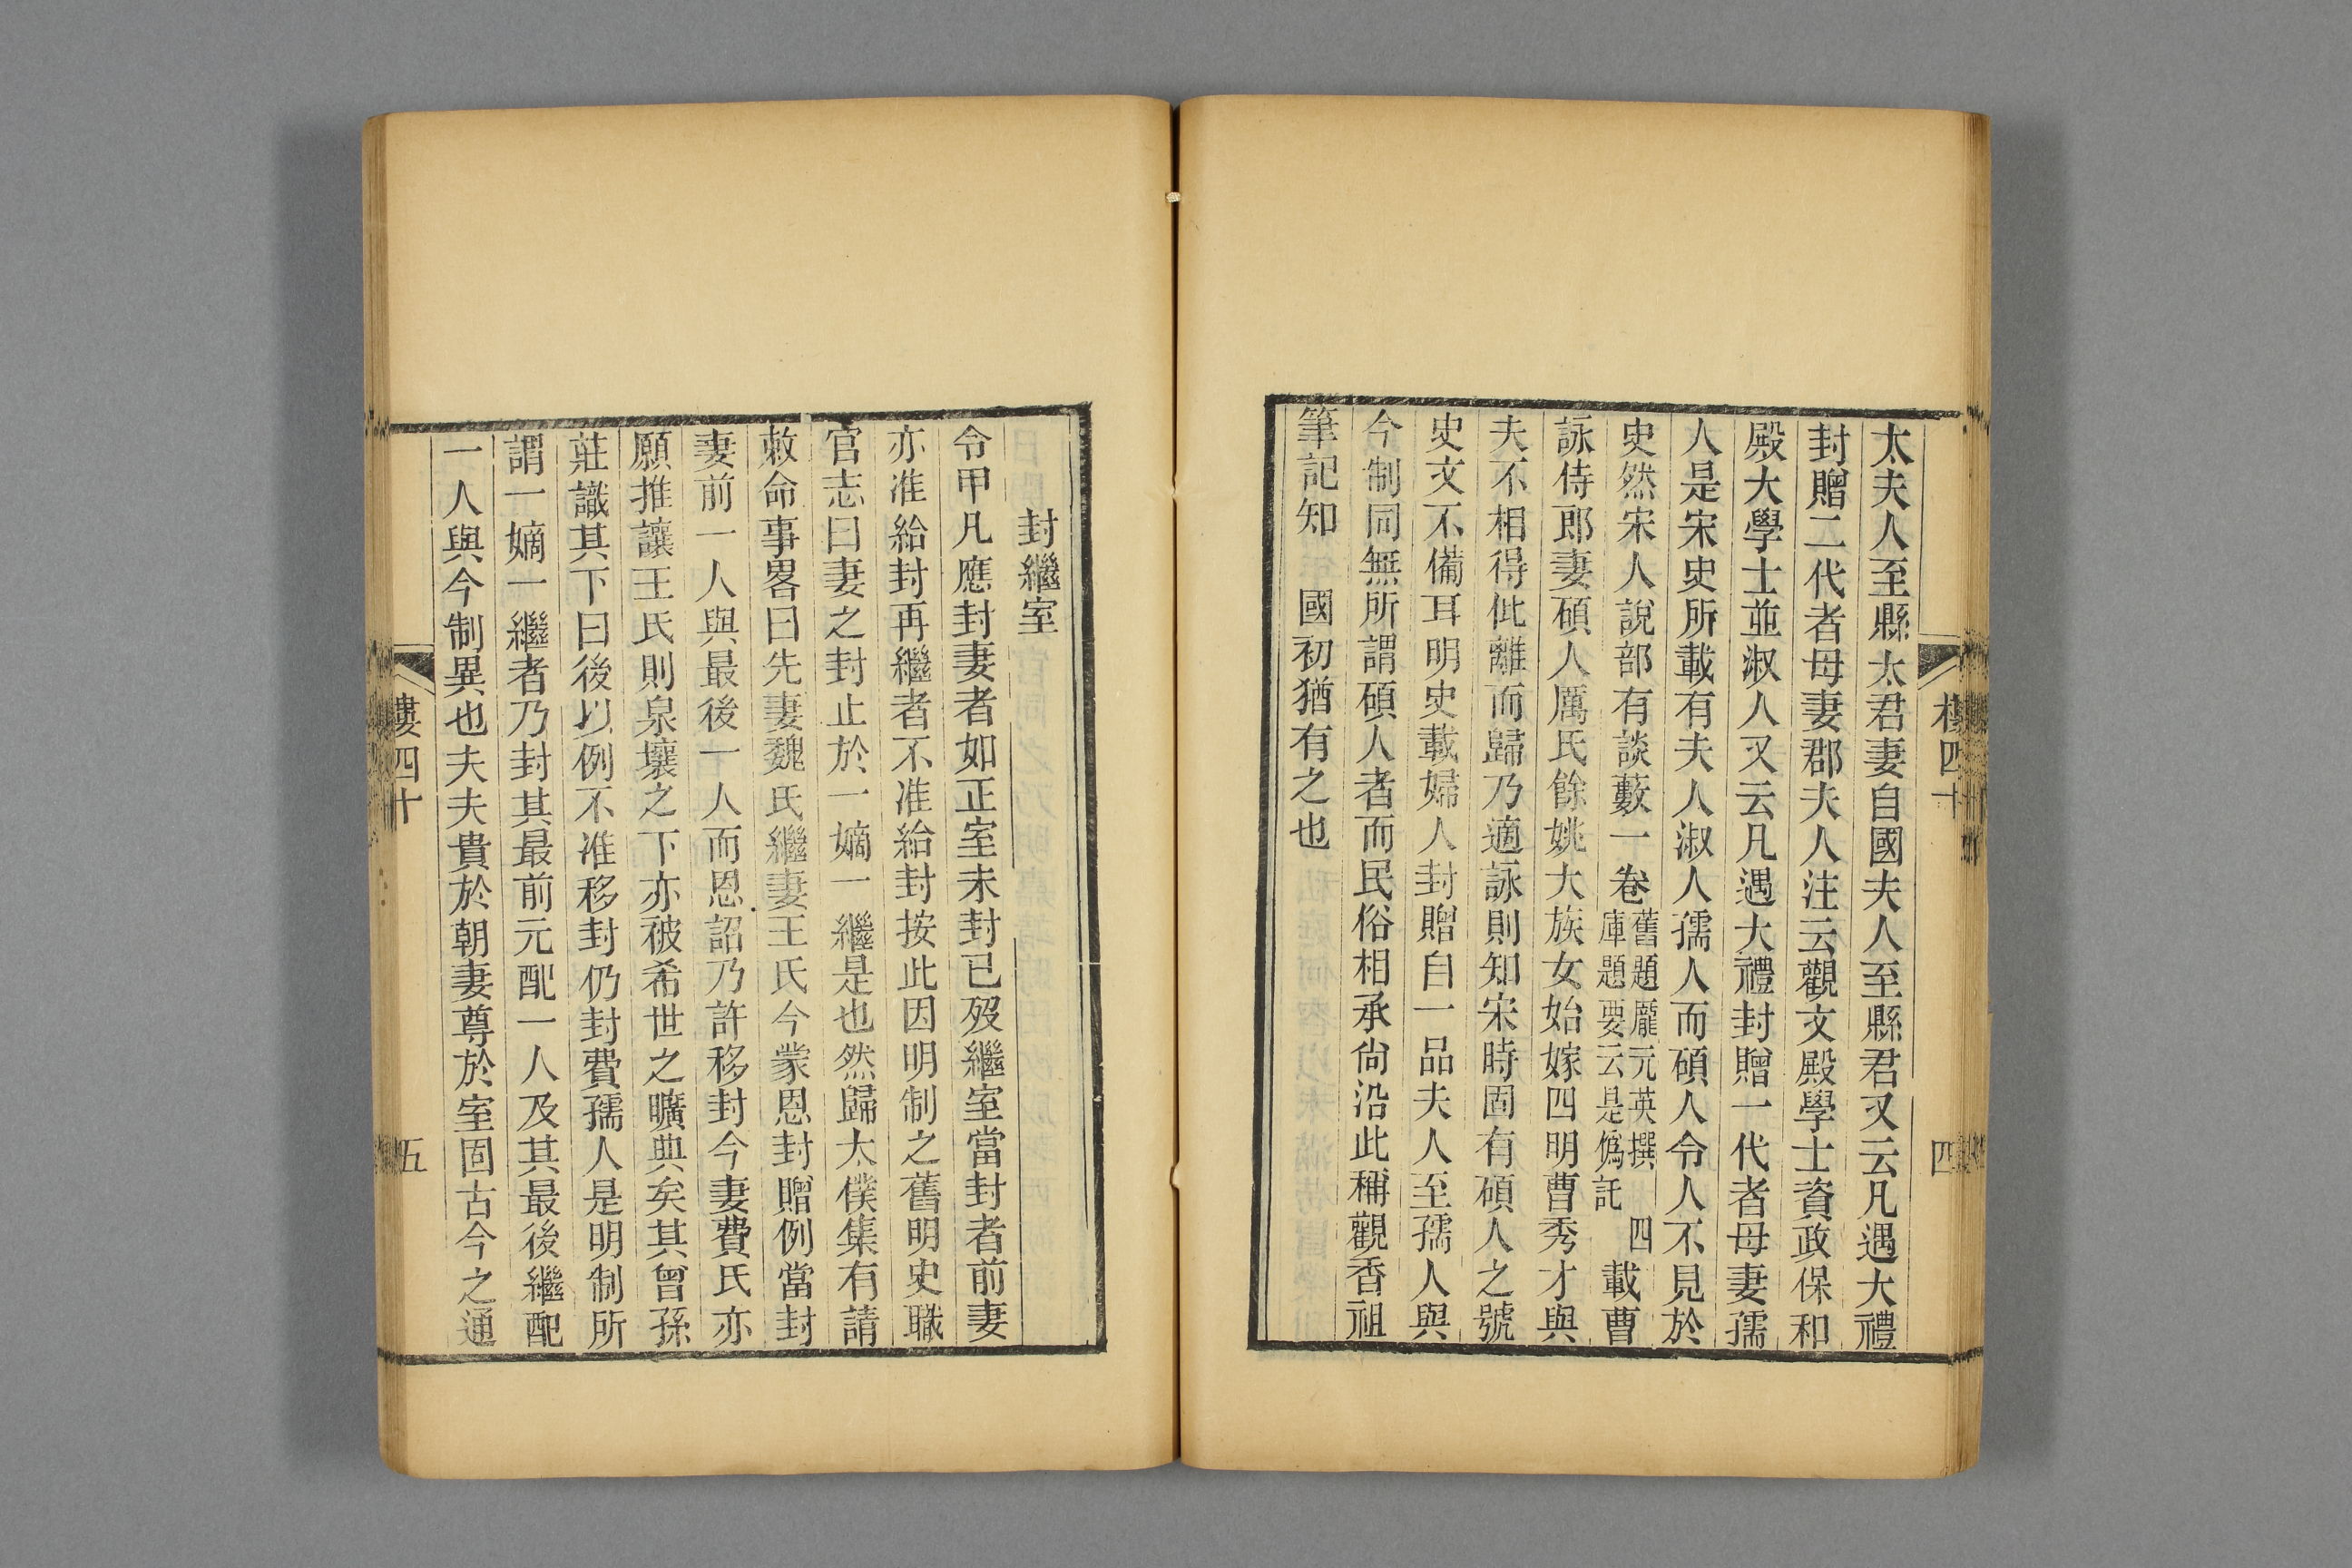 太夫人至縣太君妻自國夫人至縣君又云凡遇大禮
封贈二代者母妻郡夫人注云觀文殿學士資政保和
殿大學士並淑人又云凡遇大禮封贈一代者母妻孺
人是宋史所載有夫人淑人孺人而碩人令人不見於
史然宋人說部有談藪一卷舊題龐元英撰四庫題要云是僞託載曹
詠侍郎妻碩人厲氏餘姚大族女始嫁四明曹秀才與
夫不相得仳離而歸乃適詠則知宋時固有碩人之號
史文不備耳明史載婦人封贈自一品夫人至孺人與
今制同無所謂碩人者而民俗相承尙沿此稱觀香祖
筆記知 國初猶有之也
樓四十 四
封繼室
令甲凡應封妻者如正室未封已歿繼室當封者前妻
亦准給封再繼者不准給封按此因明制之舊明史職
官志曰妻之封止於一嫡一繼是也然歸太僕集有請
敕命事畧曰先妻魏氏繼妻王氏今蒙恩封贈例當封
妻前一人與最後一人而恩詔乃許移封今妻費氏亦
願推讓王氏則泉壤之下亦被希世之曠典矣其曾孫
莊識其下曰後以例不准移封仍封費孺人是明制所
謂一嫡一繼者乃封其最前元配一人及其最後繼配
一人與今制異也夫夫貴於朝妻尊於室固古今之通
樓四十 五